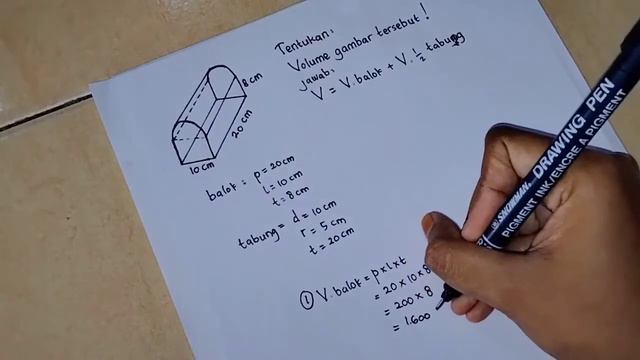 Tentukan:
Volume gambar tersebut!
jawab:
V = V.balok + V.½ tabung
8 cm
20 cm
10 cm
balok = p = 20 cm
l = 10 cm
t = 8 cm
tabung = d = 10 cm
r = 5 cm
t = 20 cm
① V.balok = p x l x t
= 20 x 10 x 8
= 200 x 8
= 1.600
SNOWMAN DRAWING PEN
PIGMENT INK/ENCRE A PIGMENT